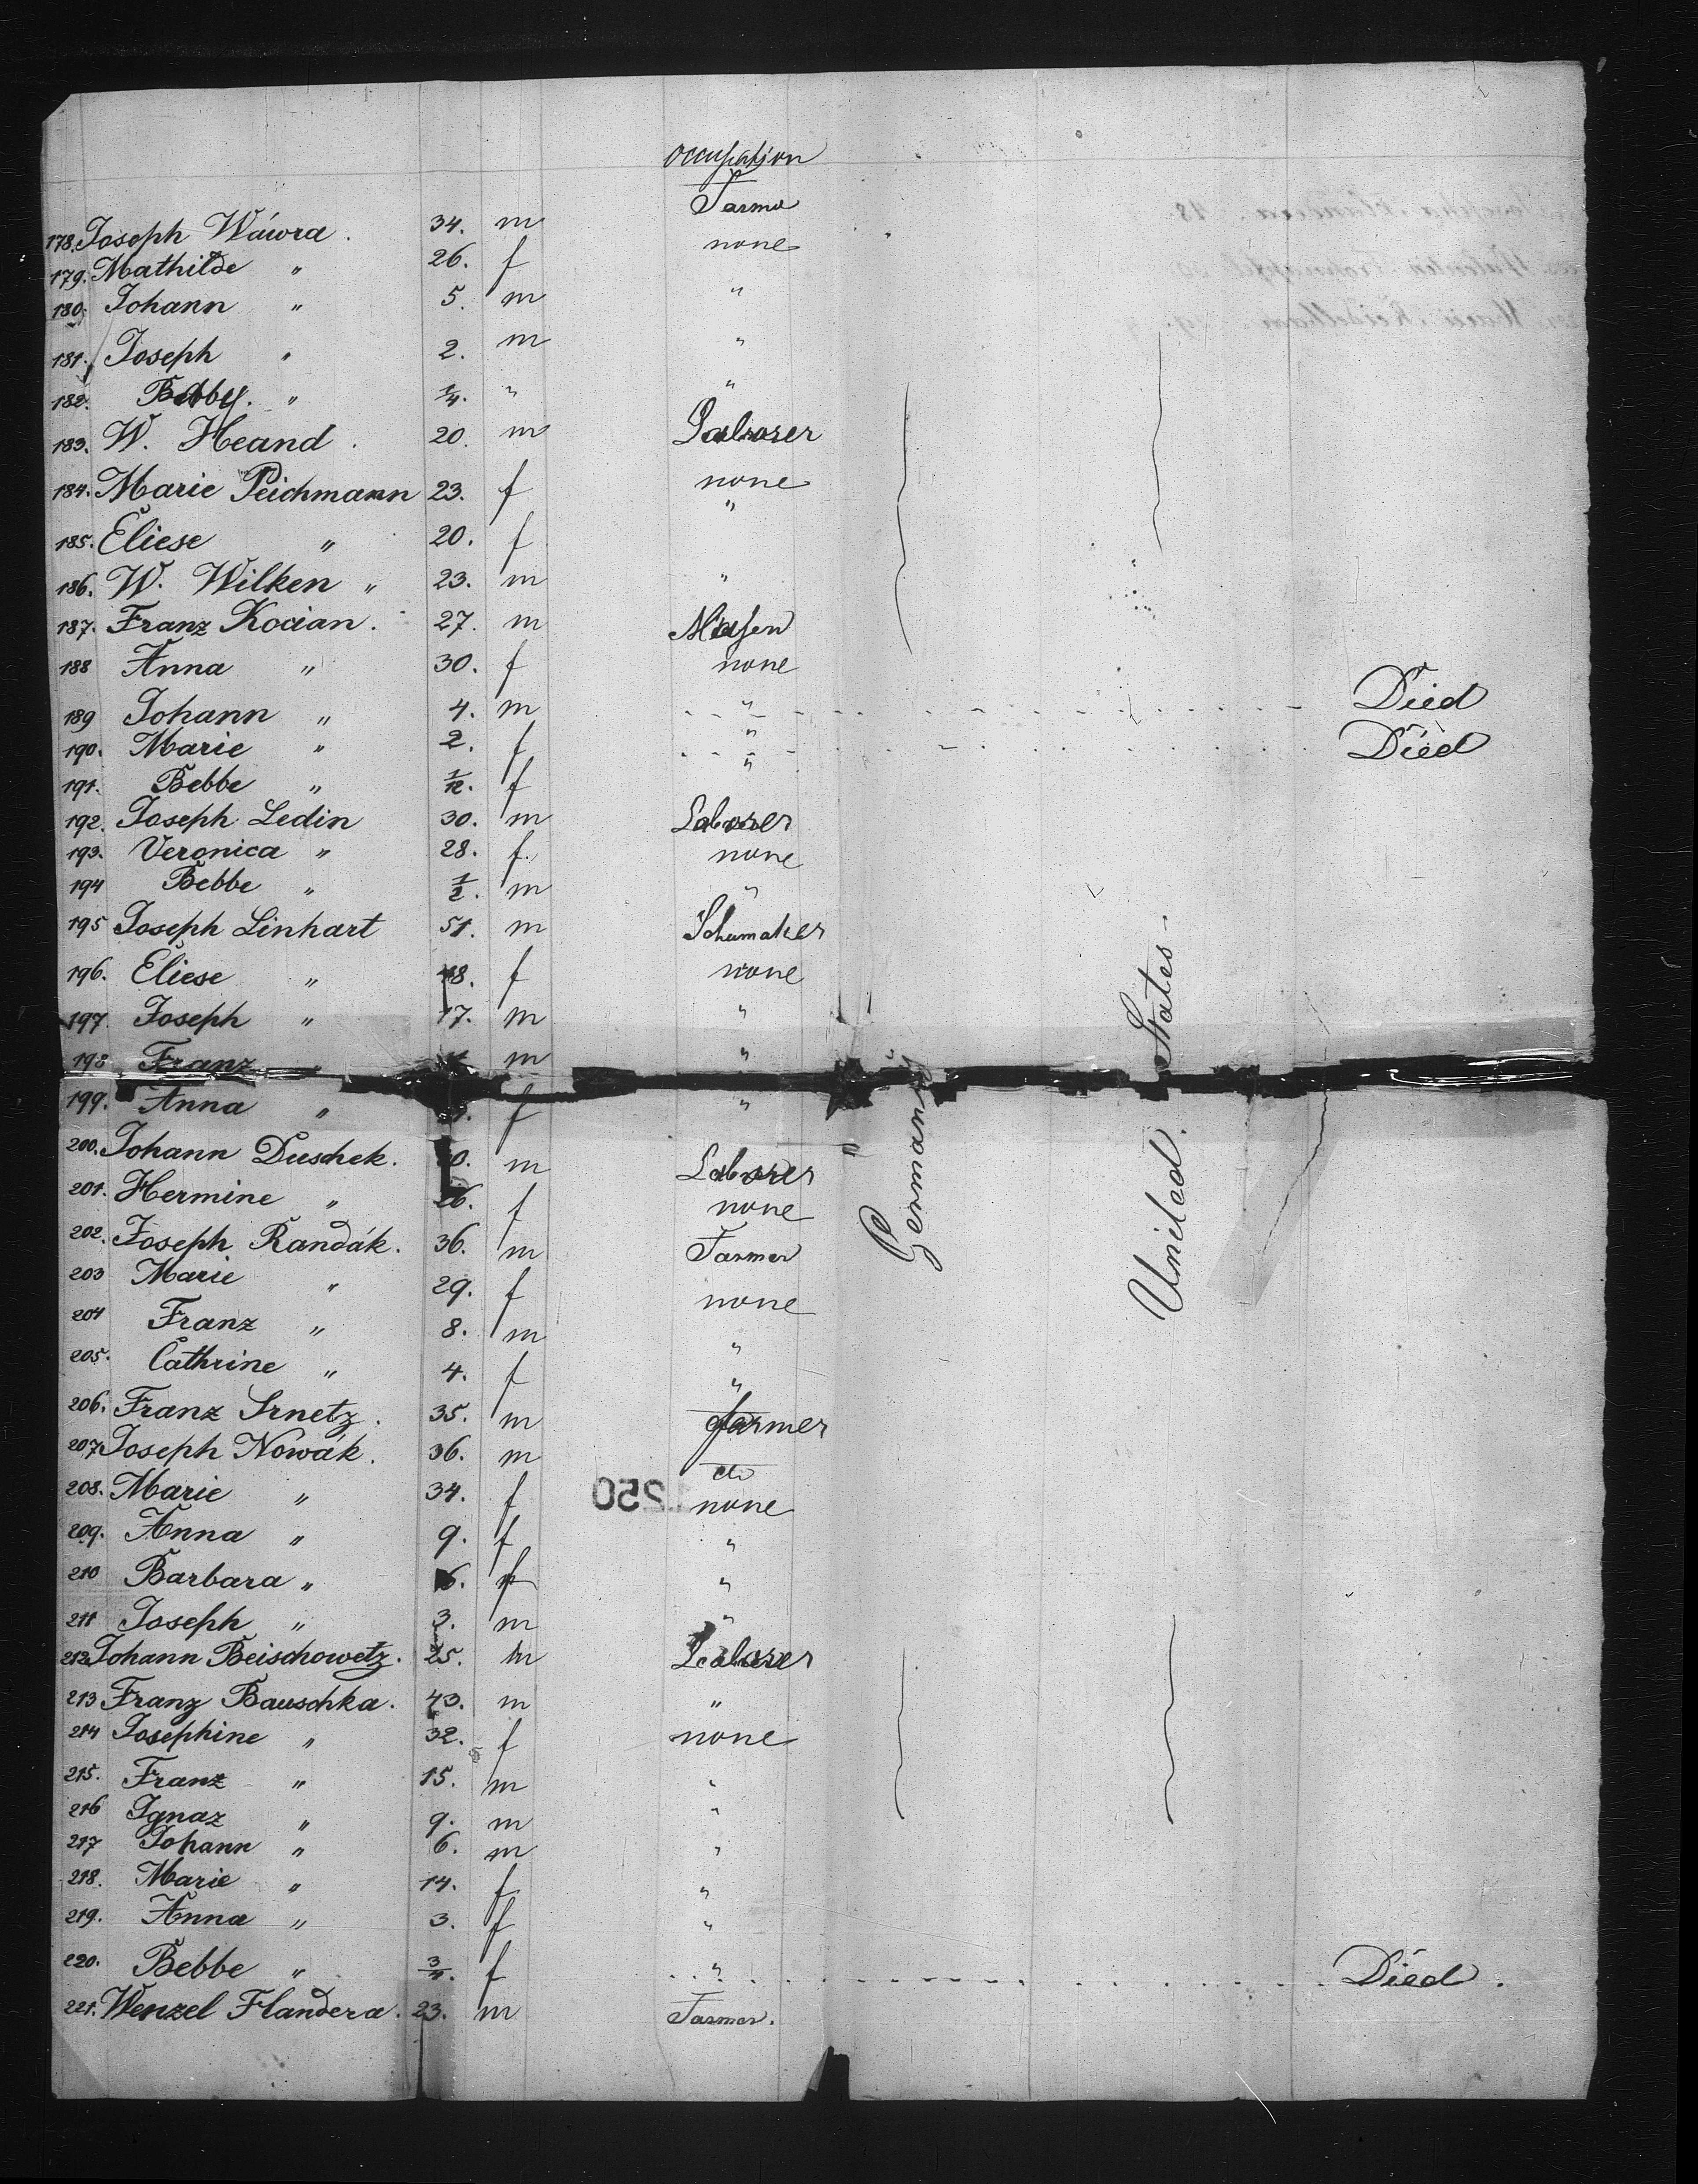 Occupation
178. Joseph Wáwra. 34. m Farmer
179. Mathilde " 26. f none
180. Johann " 5. m "
181. Joseph " 2. m "
182. Bebby. " 1/4. " "
183. W. Heand. 20. m Laborer
184. Marie Peichmann 23. f none
185. Eliese " 20. f "
186. W. Wilken " 23. m "
187. Franz Kocian. 27. m
188 Anna " 30. f none
189 Johann " 4. m " Died
190. Marie " 2. f " Died
191. Bebbe " 1/12. f "
192. Joseph Ledin 30. m Laborer
193. Veronica " 28. f. none
194 Bebbe " 1/2. m "
195 Joseph Linhart 51. m Schumaker
196. Eliese " 48. f none
197. Joseph " 17. m "
198 Franz " m "
199. Anna " f "
200. Johann Duschek. m Laborer
201. Hermine " 26. f none
202. Joseph Randák. 36. m Farmer
203 Marie " 29. f none
204 Franz " 8. m "
205. Cathrine " 4. f "
206. Franz Srnetz. 35. m farmer
207 Joseph Nowák. 36. m do
208. Marie " 34. f none
209. Anna " 9. f "
210 Barbara " 6. f "
211 Joseph " 3. m "
212 Johann Beischowetz. 25. m Laborer
213 Franz Bauschka. 43. m "
214 Josephine " 32. f none
215. Franz " 15. m "
216 Ignaz " 9. m "
217 Johann " 6. m "
218. Marie " 14. f "
219. Anna " 3. f "
220. Bebbe " 3/4. f " Died.
221. Wenzel Flandera. 23. m Farmer.
Germany
United States